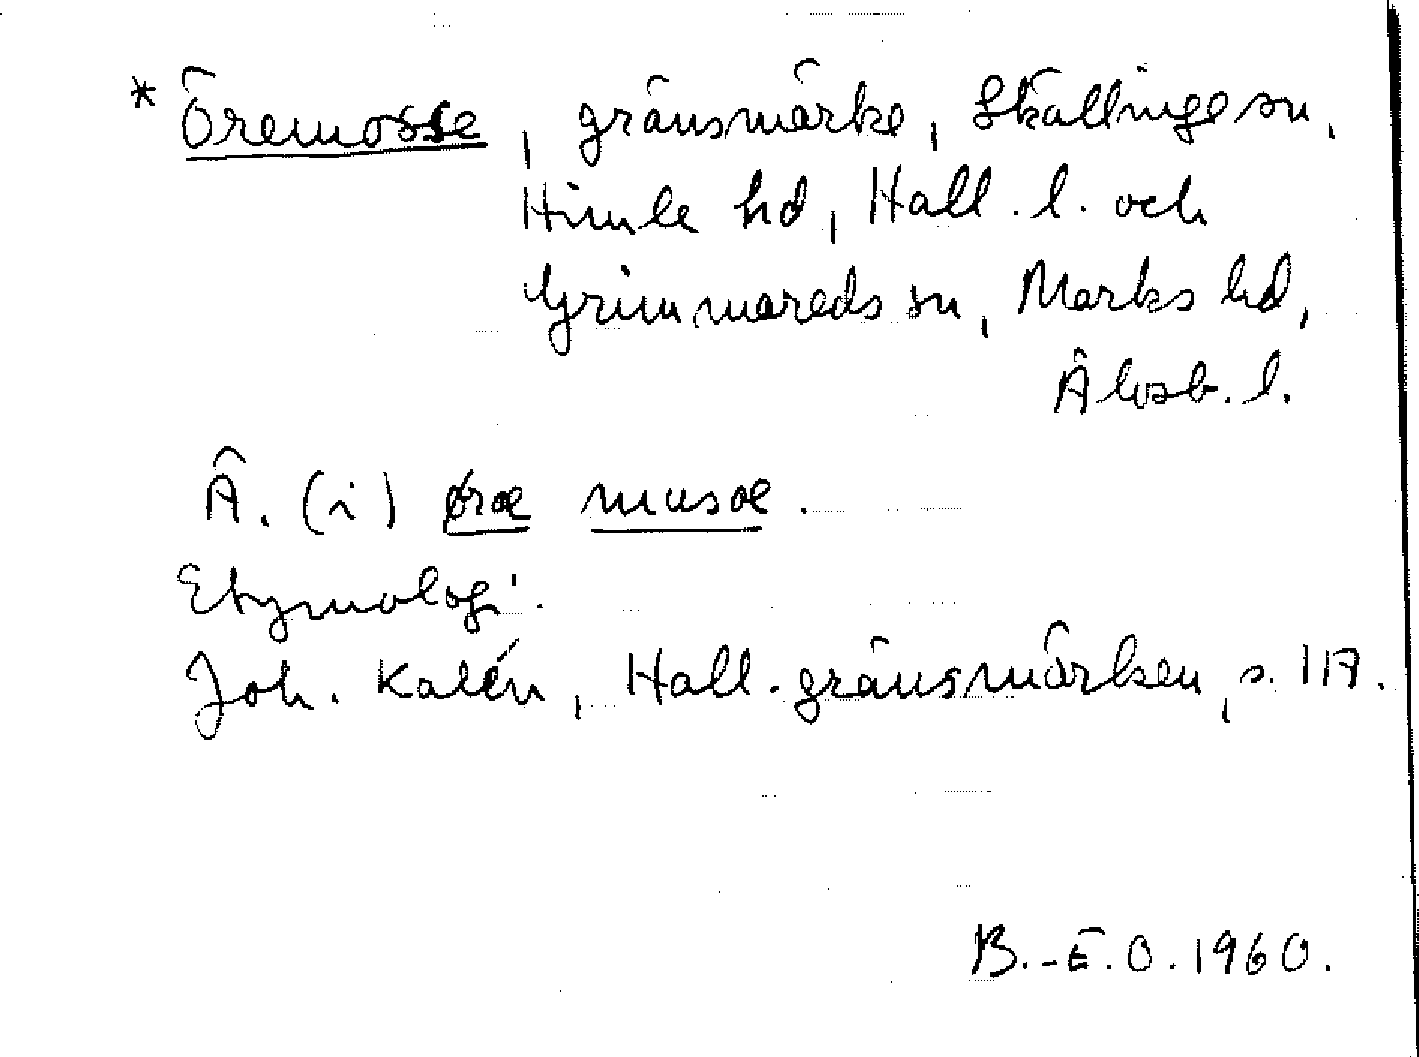 * Öremosse, gränsmärke, Skällinge sn,
Himle hd, Hall. l. och
Grimmareds sn, Marks hd,
Älvsb. l.
Ä. (i) øræ musæ.
Etymologi.
Joh. Kalén, Hall. gränsmärken, s. 117.
B.-E.O. 1960.